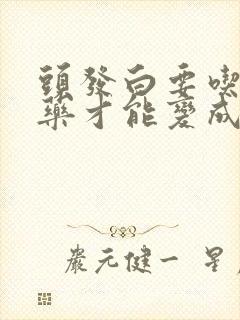 頭發白要喫
藥才能變成
嚴元健一 星